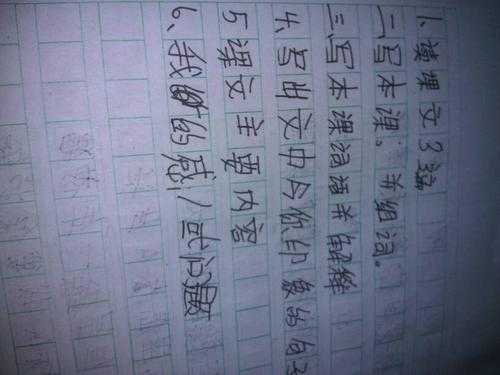 1、读课文3遍
二写本课。并组词。
三、写本课词语并解释
4、写出文中令你印象的句子
5课文主要内容
6、我的感/或问题